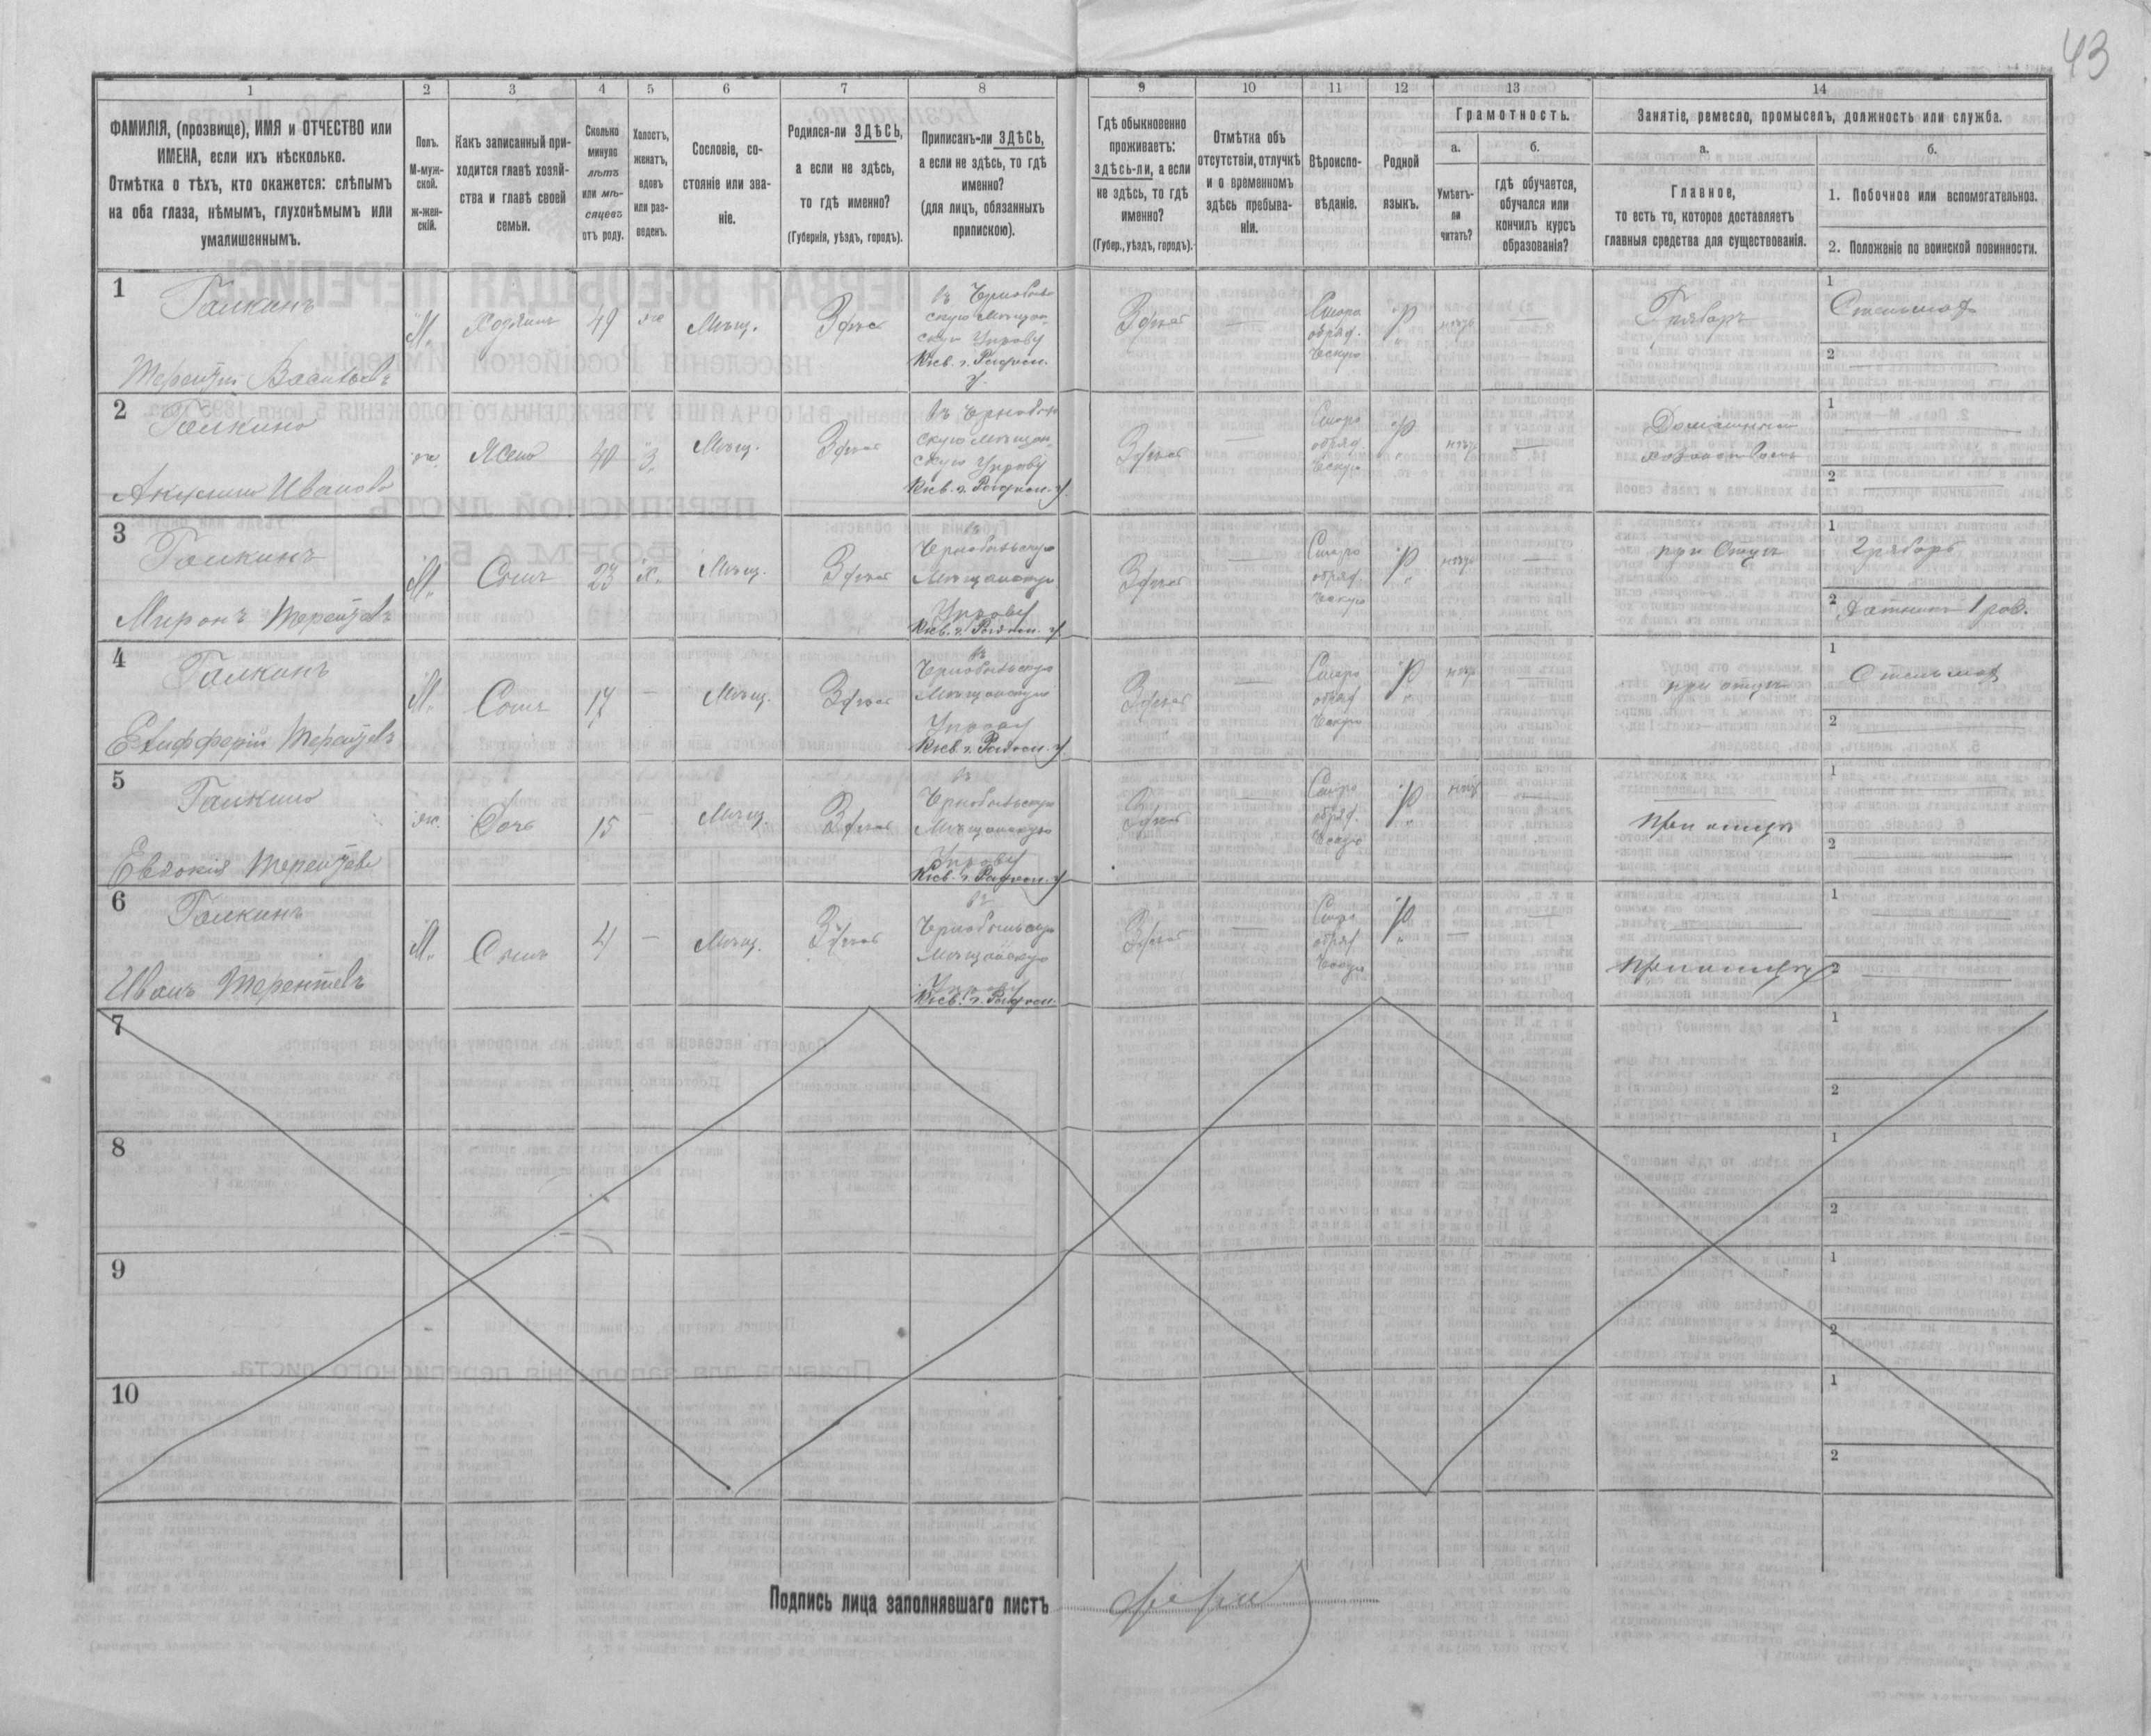 43
1 2 3 4 5 6 7 8 9 10 11 12 13 14
ФАМИЛІЯ, (прозвище), ИМЯ и ОТЧЕСТВО или
ИМЕНА, если ихъ нѣсколько.
Отмѣтка о тѣхъ, кто окажется: слѣпымъ
на оба глаза, нѣмымъ, глухонѣмымъ или
умалишеннымъ.
Полъ.
М-муж-
ской.
ж-жен-
скій.
Какъ записанный при-
ходится главѣ хозяй-
ства и главѣ своей
семьи.
Сколько
минуло
лѣтъ
или мѣ-
сяцевъ
отъ роду.
Холостъ,
женатъ,
вдовъ
или раз-
веденъ.
Сословіе, со-
стояніе или зва-
ніе.
Родился-ли ЗДѢСЬ,
а если не здѣсь,
то гдѣ именно?
(Губернія, уѣздъ, городъ).
Приписанъ-ли ЗДѢСЬ,
а если не здѣсь, то гдѣ
именно?
(для лицъ, обязанныхъ
припискою).
Гдѣ обыкновенно
проживаетъ:
здѣсь-ли, а если
не здѣсь, то гдѣ
именно?
(Губер., уѣздъ, городъ).
Отмѣтка объ
отсутствіи, отлучкѣ
и о временномъ
здѣсь пребыва-
ніи.
Вѣроиспо-
вѣданіе.
Родной
языкъ.
Грамотность.
а.
Умѣетъ-
ли
читать?
б.
гдѣ обучается,
обучался или
кончилъ курсъ
образованія?
Занятіе, ремесло, промыселъ, должность или служба.
а.
Главное,
то есть то, которое доставляетъ
главныя средства для существованія.
б.
1. Побочное или вспомогательное.
2. Положеніе по воинской повинности.
1
Галкинъ
Терентій Васильевъ
М. Хозяинъ 49 ж Мѣщ. Здѣсь
въ Чернобыль-
скую Мѣщан-
скую Управу
Кіев. г. Радом.
у.
Здѣсь —
Старо
обряд.
ческую
Р нѣтъ —
Грабаръ
1 Стельмах
2
2
Галкина
Акулина Иванова
ж Жена 40 з. Мѣщ. Здѣсь
въ Чернобыль-
скую Мѣщан-
скую Управу
Кіев. г. Радом. у.
Здѣсь —
Старо
обряд.
ческую
Р нѣтъ —
Домашнее
хозяйство
1 —
2 —
3
Галкинъ
Миронъ Терентьевъ
М. Сынъ 23 х. Мѣщ. Здѣсь
въ
Чернобыльскую
Мѣщанскую
Управу
Кіев. г. Радом. у.
Здѣсь —
Старо
обряд.
ческую
Р нѣтъ —
при Отцѣ
1 Грабаръ
2 1 раз.
4
Галкинъ
Терентьевъ
М. Сынъ 17 — Мѣщ. Здѣсь
въ
Чернобыльскую
Мѣщанскую
Управу
Кіев. г. Радом. у.
Здѣсь —
Старо
обряд
ческую
Р нѣтъ —
при отцѣ
1 Стельмах
2 —
5
Галкина
Евдокия Терентьева
ж. Дочь 15 — Мѣщ. Здѣсь
въ
Чернобыльскую
Мѣщанскую
Управу
Кіев. г. Радом. у.
Здѣсь —
Старо
обряд.
ческую
Р нѣтъ —
При отцѣ
1 —
2 —
6
Галкинъ
Иванъ Терентьевъ
М. Сынъ 4 — Мѣщ. Здѣсь
въ
Чернобыльскую
Мѣщанскую
Управу
Кіев. г. Радом.
Здѣсь —
Старо
обряд
ческую
Р — —
При отцѣ
1 —
2 —
7
1
2
8
1
2
9
1
2
10
1
2
Подпись лица заполнявшаго листъ